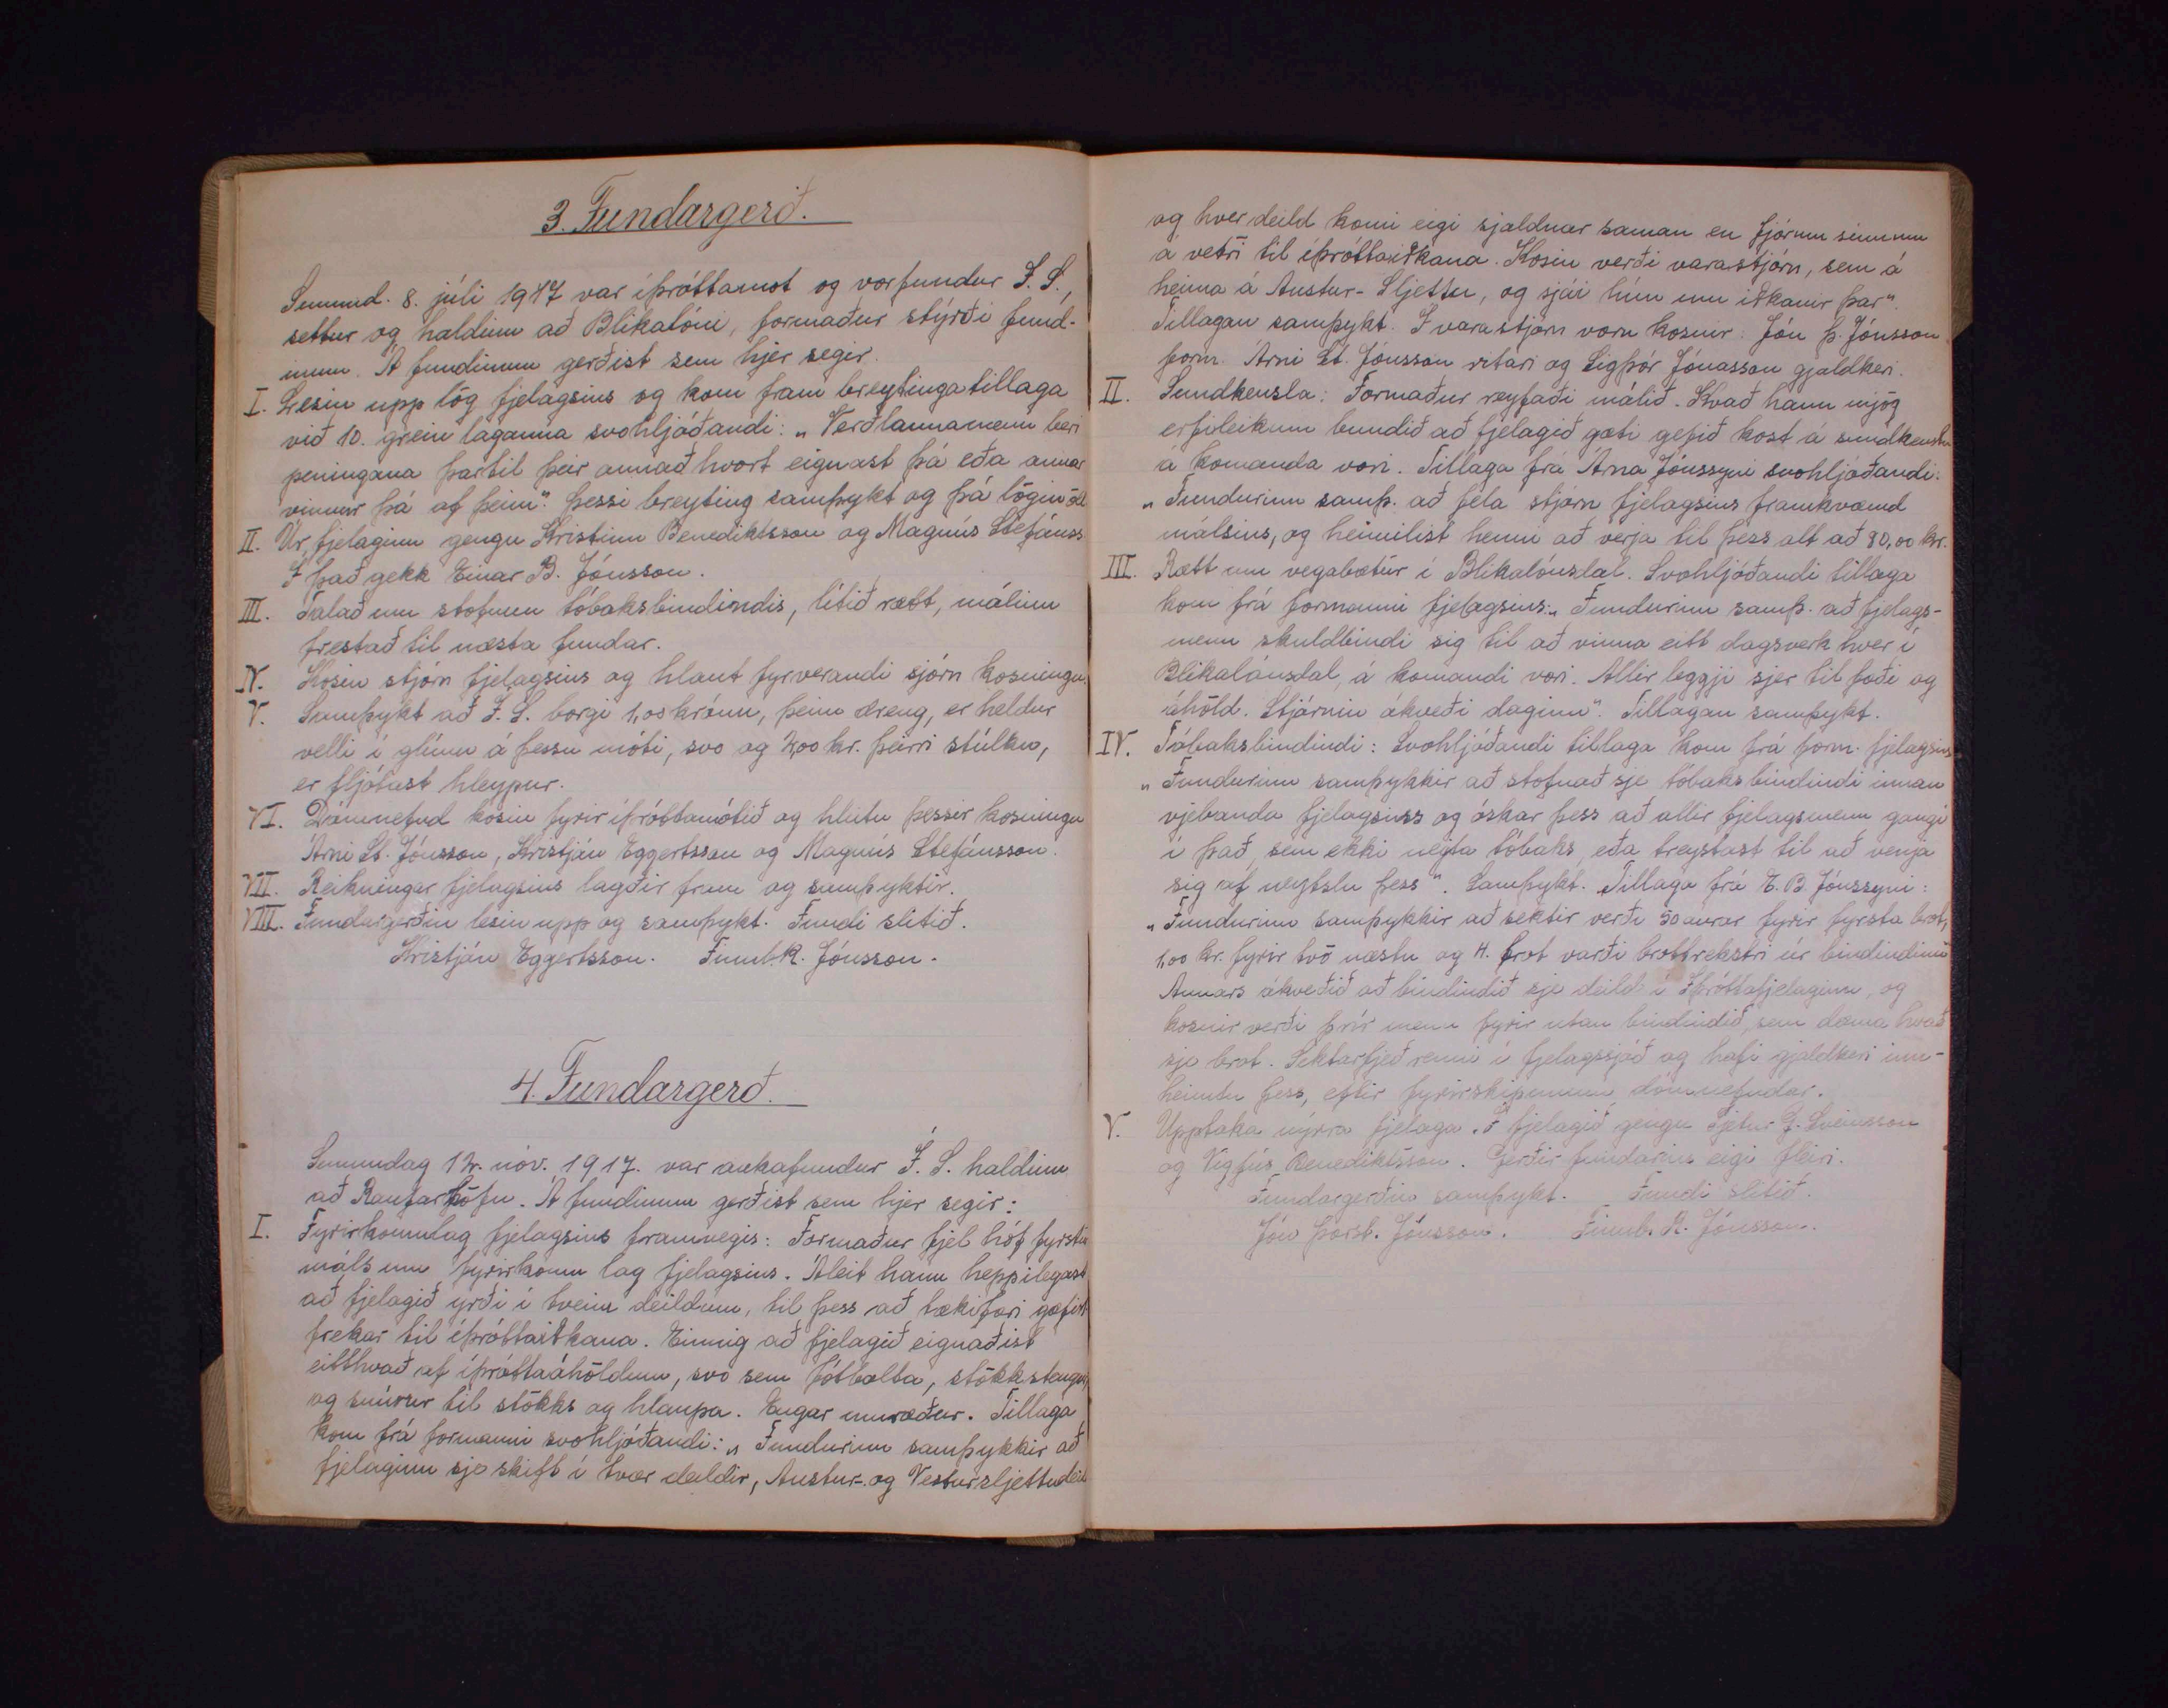 3. Fundargerð.
Sunnud. 8. júlí 1917 var íþróttamót og vorfundur Í. S.,
settur og haldinn að Blikalóni, formaður stýrði fund-
inum. Á fundinum gerðist sem hjer segir.
I. Lesin upp lög fjelagsins og kom fram breytingatillaga
við 10. grein laganna svohljóðandi: „Verðlaunamenn beri
peningana þartil þeir annaðhvort eignast þá eða annar
vinnur þá af þeim". Þessi breyting samþykt og þá lögin öll
II. Úr fjelaginu gengu Kristinn Benediktsson og Magnús Stefánss.
Í það gekk Einar B. Jónsson.
III. Talað um stofnun tóbaksbindindis, lítið rætt, málinu
frestað til næsta fundar.
IV. Kosin stjórn fjelagsins og hlaut fyrverandi sjórn kosningu.
V. Samþykt að Í. S. borgi 1,00 krónu, þeim dreng, er heldur
velli í glímu á þessu móti, svo og 2,00 kr. þeirri stúlku,
er fljótast hleypur.
VI. Dómnefnd kosin fyrir íþróttamótið og hlutu þessir kosningu
Árni St. Jónsson, Kristján Eggertsson og Magnús Stefánsson.
VII. Reikningar fjelagsins lagðir fram og samþyktir.
VIII. Fundargerðin lesin upp og samþykt. Fundi slitið.
Kristján Eggertsson. Funnb. R. Jónsson.
4. Fundargerð.
Sunnudag 12. nóv. 1917. var aukafundur Í. S. haldinn
að Raufarhöfn. Á fundinum gerðist sem hjer segir:
I. Fyrirkomulag fjelagsins framvegis: Formaður fjel hóf fyrstu
máls um fyrirkomu lag fjelagsins. Áleit hann heppilegast
að fjelagið yrði í tveim deildum, til þess að tækifæri gæfist
frekar til íþróttaiðkana. Einnig að fjelagið eignaðist
eitthvað af íþróttaáhöldum, svo sem fótbolta, stökkstengur,
og snúrur til stökks og hlaupa. Engar umræður. Tillaga
kom frá formanni svohljóðandi: „Fundurinn samþykkir að
fjelaginu sje skift í tvær deildir, Austur- og Vestursljettudeild
og hver deild komi eigi sjaldnar saman en fjórum sinnum
á vetri til íþróttaiðkana. Kosin verði varastjórn, sem á
heima á Austur-Sljettu, og sjái hún um iðkanir þar".
Tillagan samþykt. Í varastjórn voru kosnir: Jón Þ. Jónsson
form. Árni St. Jónsson ritari og Sigþór Jónasson gjaldkeri.
II. Sundkensla: Formaður reyfaði málið. Kvað hann mjög
erfiðleikum bundið að fjelagið gæti gefið kost á sundkenslu
á komanda vori. Tillaga frá Árna Jónssyni svohljóðandi:
„Fundurinn samþ. að fela stjórn fjelagsins framkvæmd
málsins, og heimilist henni að verja til þess alt að 80,00 kr.
III. Rætt um vegabætur í Blikalónsdal. Svohljóðandi tillaga
kom frá formanni fjelagsins: „Fundurinn samþ. að fjelags-
menn skuldbindi sig til að vinna eitt dagsverk hver í
Blikalónsdal, á komandi vori. Allir leggji sjer til fæði og
áhöld. Stjórnin ákveði daginn". Tillagan samþykt.
IV. Tóbaksbindindi: Svohljóðandi tillaga kom frá form. fjelagsins
„Fundurinn samþykkir að stofnað sje tóbaksbindindi innan
vjebanda fjelagsinss og óskar þess að allir fjelagsmenn gangi
í það, sem ekki neyta tóbaks, eða treystast til að venja
sig af neytslu þess". Samþykt. Tillaga frá E. B. Jónssyni:
„Fundurinn samþykkir að sektir verði 50 aurar fyrir fyrsta brot,
1,00 kr. fyrir tvö næstu og 4. brot varði brottrekstri úr bindindinu
Annars ákveðið að bindindið sje deild í Íþróttafjelaginu, og
kosnir verði þrír menn fyrir utan bindindið, sem dæma hvað
sje brot. Sektarfjeð renni í fjelagssjóð og hafi gjaldkeri inn-
heimtu þess, eftir fyrirskipunum dómnefndar.
V. Upptaka nýrra fjelaga. Í fjelagið gengu Pjetur G. Sveinsson
og Vigfús Benediktsson. Gerðir fundarins eigi fleiri.
Fundargerðin samþykt. Fundi slitið.
Jón Þorst. Jónsson. Finnb. R. Jónsson.